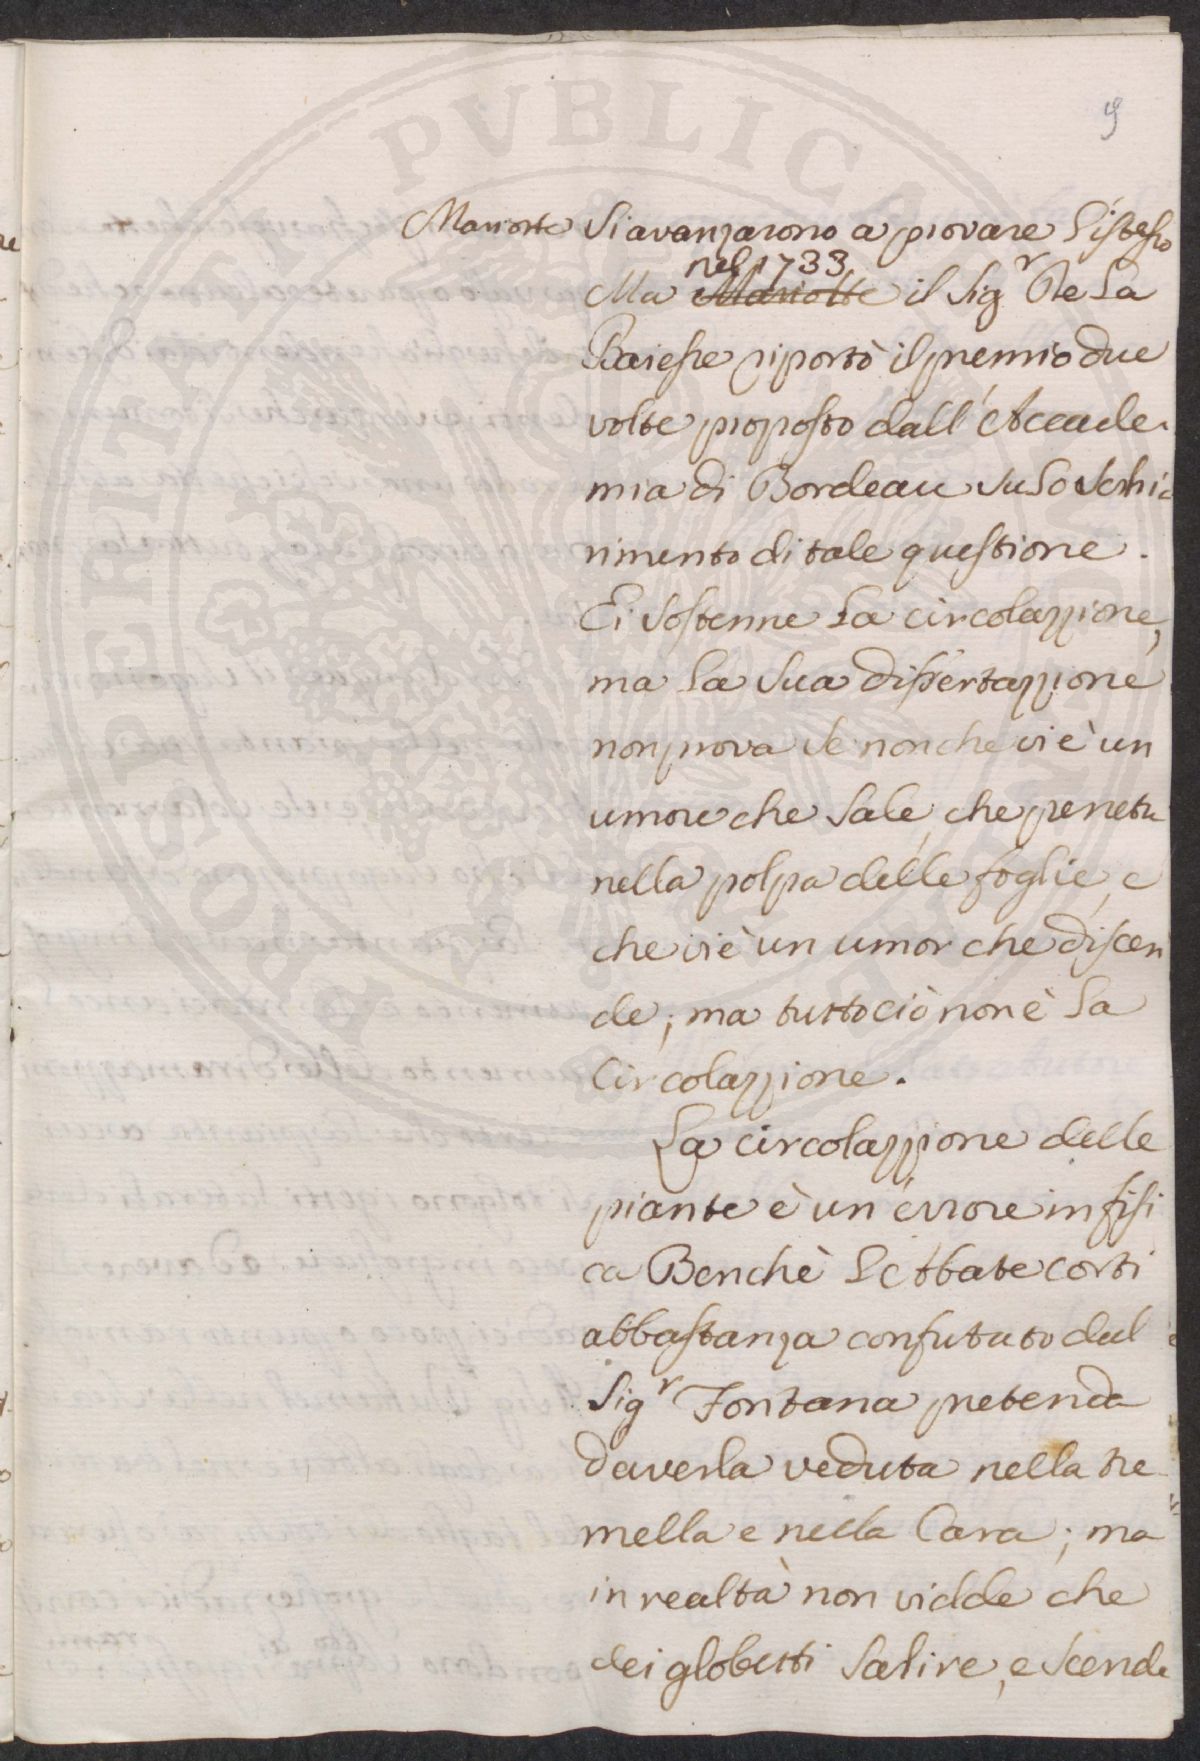 9
Mariotte si avanzarono a provare l'istesso
nel 1733
Ma Mariotte il Sigr De La
Baiesse riportò il premio due
volte proposto dall'Accade-
mia di Bordeau su lo schia
rimento di tale questione.
Ei sostenne la circolazzione,
ma la sua dissertazzione
non prova se non che vi è un
umore che sale, che penetra
nella polpa delle foglie, e
che vi è un umor che discen
de; ma tutto ciò non è la
Circolazzione.
La circolazzione delle
piante è un errore in fisi
ca Benchè l'Abbate Corti
abbastanza confutato dal
Sigr Fontana pretenda
d'averla veduta nella tre
mella e nella Cara; ma
in realtà non vidde che
dei globetti salire, e scende